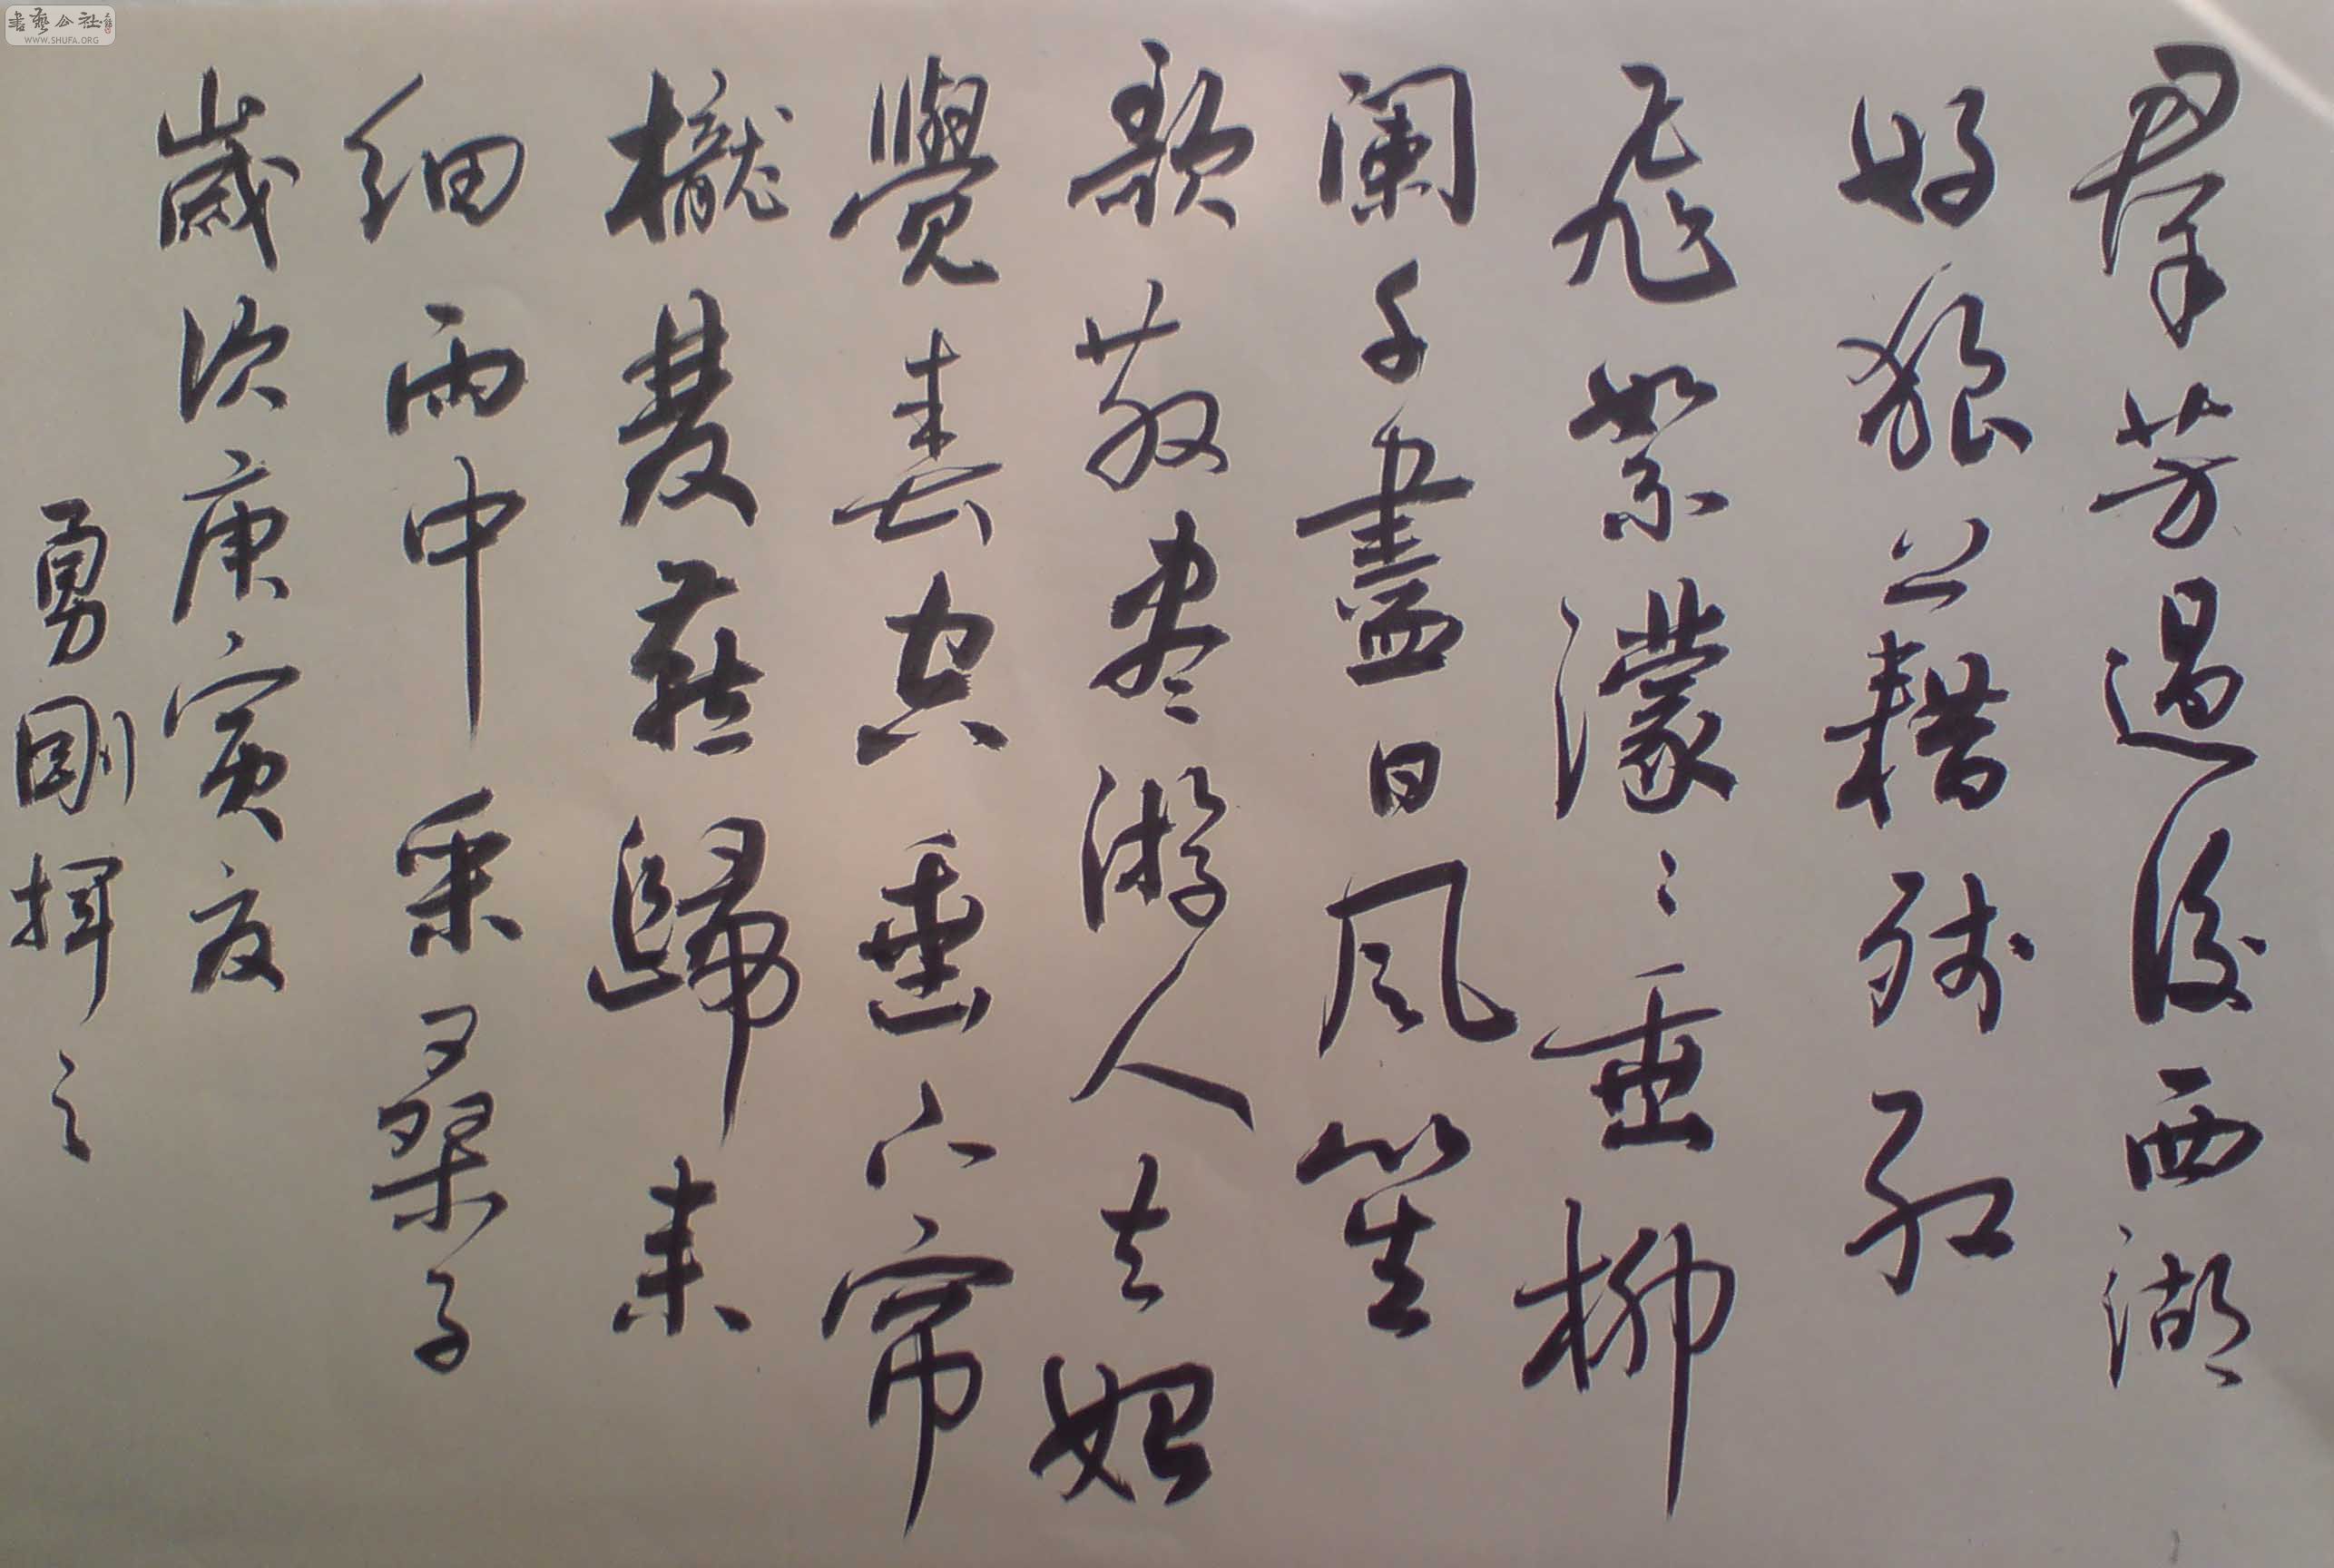 羣芳過後西湖
好狼藉殘紅
飛絮濛〻垂柳
闌干盡日風笙
歌散尽游人去始
覺春空垂下帘
櫳雙燕歸来
细雨中 采桑子
歲次庚寅夏
勇刚挥之
書藝公社
WWW.SHUFA.ORG